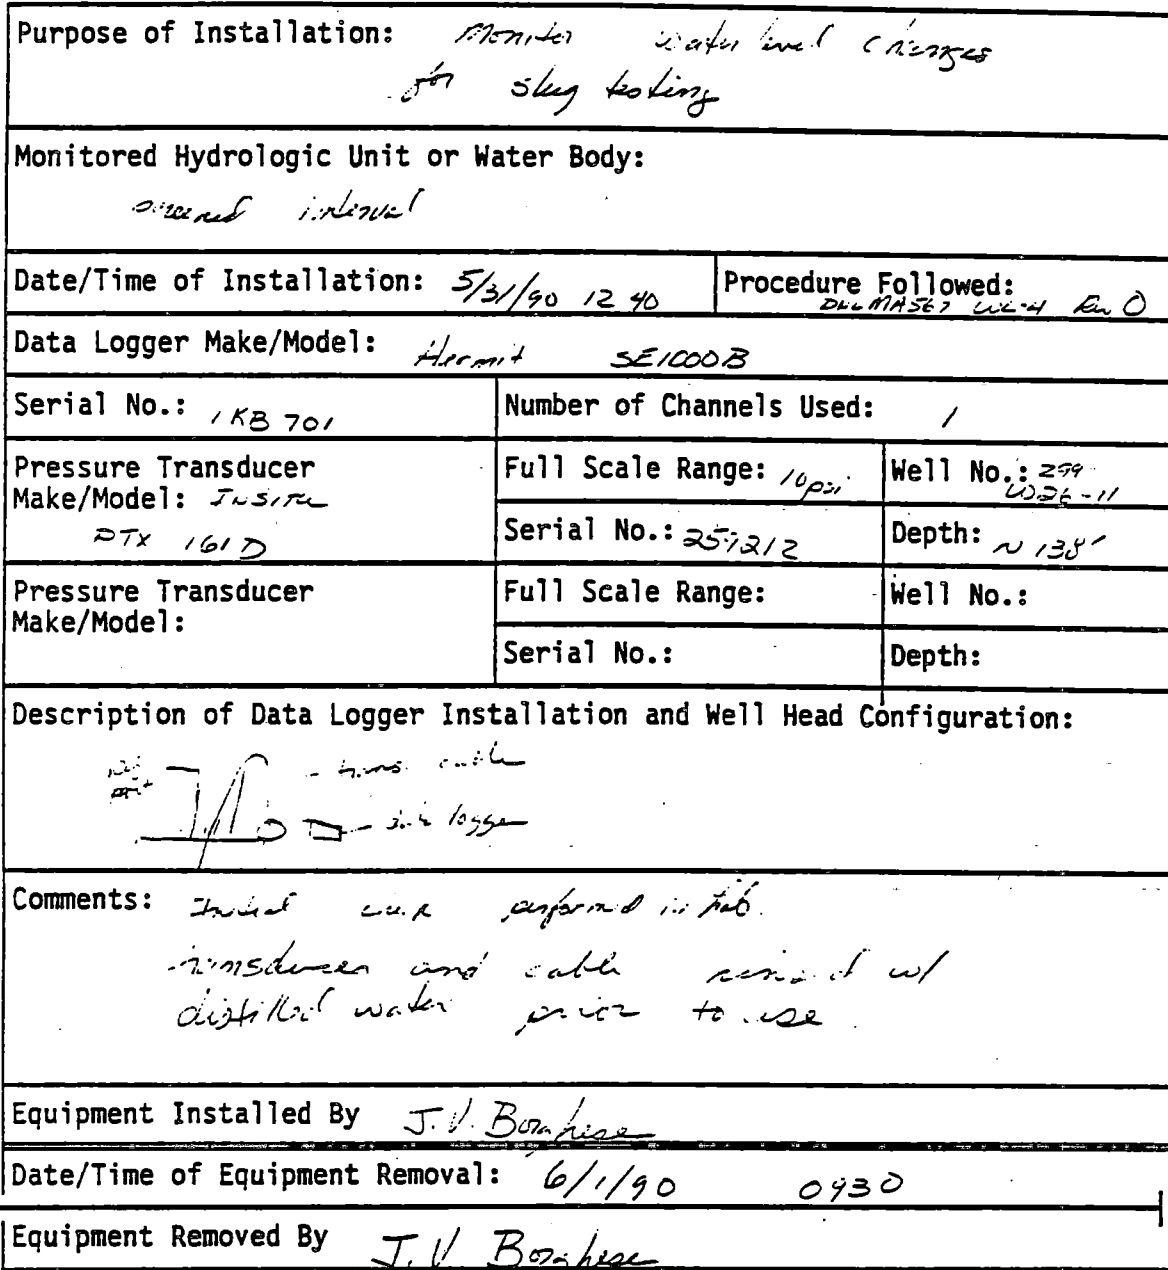 Purpose of Installation: Monitor water level changes
for slug testing
Monitored Hydrologic Unit or Water Body:
screened interval
Date/Time of Installation: 5/31/90 12 40
Procedure Followed:
WL-4 Rev 0
Data Logger Make/Model: Hermit SE1000B
Serial No.: 1KB 701
Number of Channels Used: 1
Pressure Transducer
Make/Model: InSitu
PTX 161D
Full Scale Range: 10psi
Well No.: 299
W26-11
Serial No.:
Depth: ~ 138'
Pressure Transducer
Make/Model:
Full Scale Range:
Well No.:
Serial No.:
Depth:
Description of Data Logger Installation and Well Head Configuration:
- trans. cable
- data logger
Comments: Initial performed in lab.
transducer and cable rinsed w/
distilled water prior to use
Equipment Installed By J.V. Borghese
Date/Time of Equipment Removal: 6/1/90 0930
Equipment Removed By J.V. Borghese